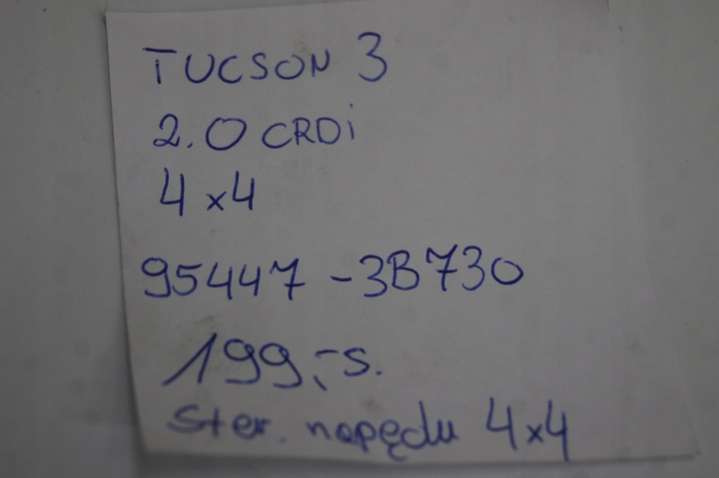 TUCSON 3
2.0 CRDi
4x4
95447-3B730
199,-s.
Ster. napędu 4x4